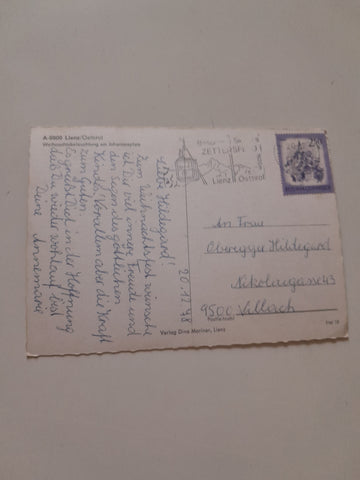 A-9900 Lienz/Osttirol
Weihnachtsbeleuchtung am Johannesplatz
20.12.78
Liebe Hildegard!
Zum Weihnachtsfest wünsche
ich Dir viel innere Freude und
den Segen des göttlichen
Kindes. Vor allem aber die Kraft
zum
Es grüßt Dich in der Hoffnung
daß Du wieder wohlauf bist
Deine Annemarie
ZETTERSFELD
Lienz Osttirol
An Frau
Oberegger Hildegard
Nikolaigasse 43
9500 Villach
Postleitzahl
Verlag Dina Mariner, Lienz